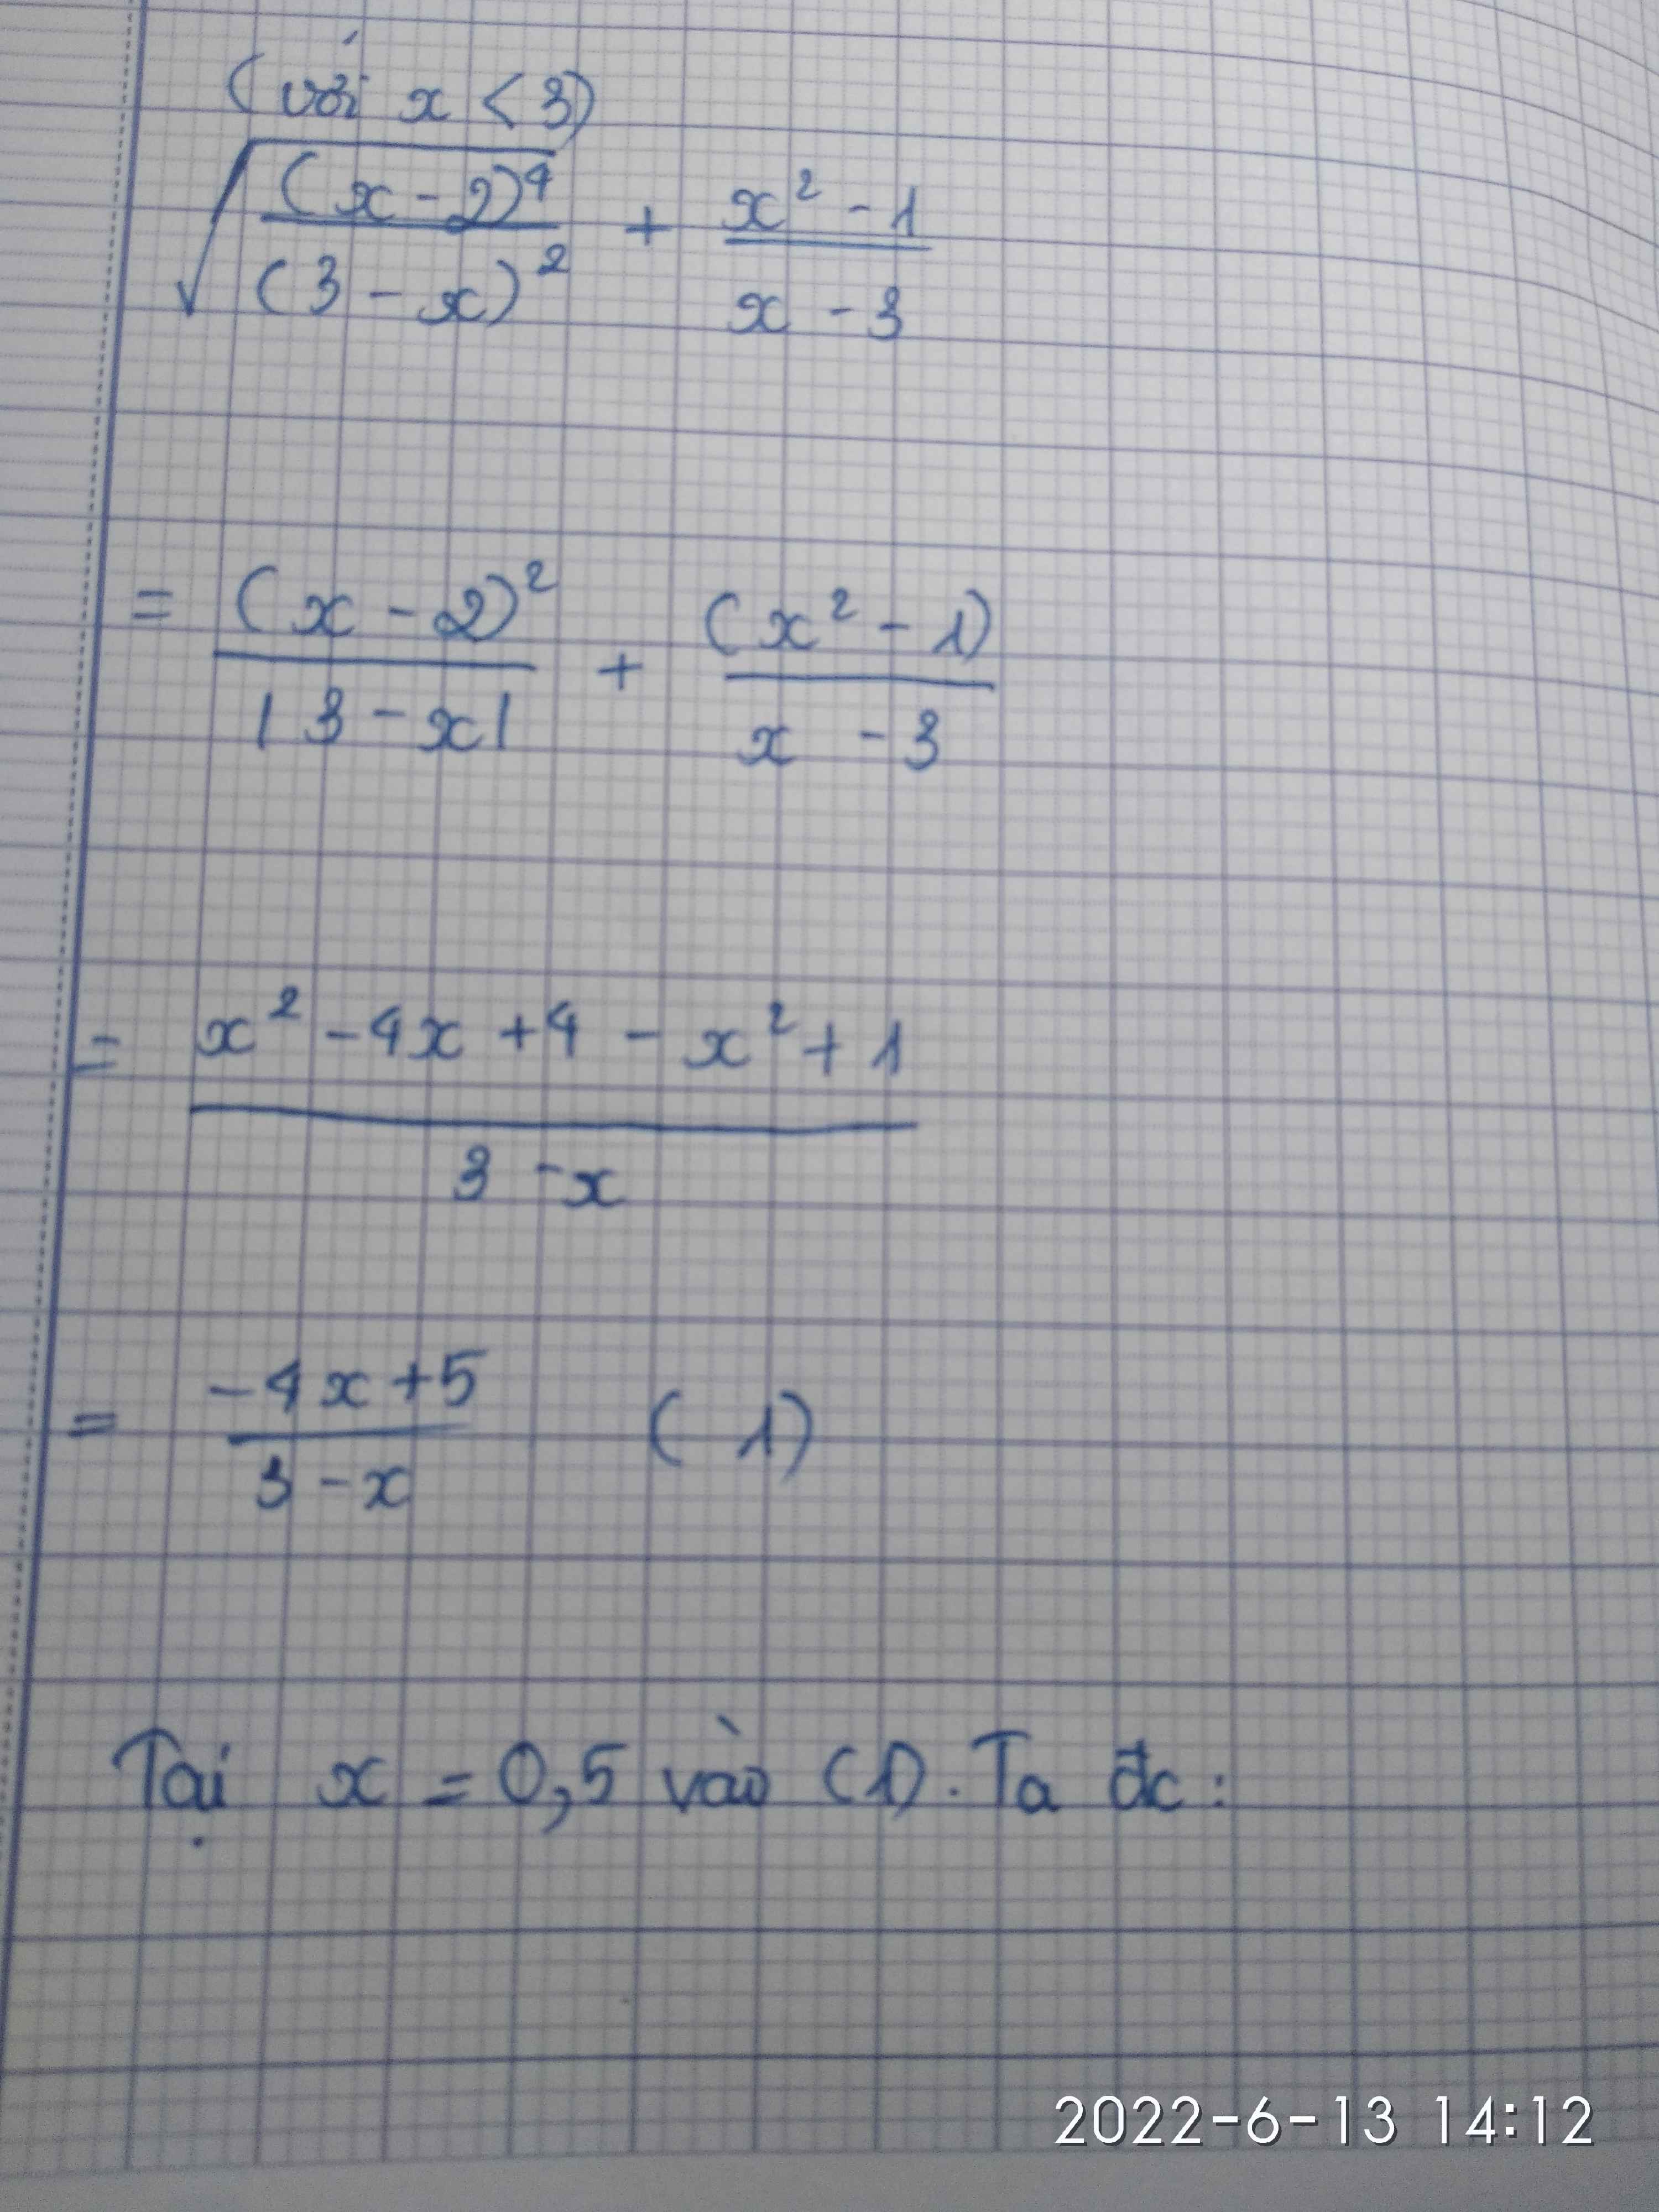 (với x < 3)
√((x - 2)⁴ / (3 - x)²) + (x² - 1) / (x - 3)
= (x - 2)² / |3 - x| + (x² - 1) / (x - 3)
= (x² - 4x + 4 - x² + 1) / (3 - x)
= (-4x + 5) / (3 - x) (1)
Tại x = 0,5 vào (1). Ta đc:
2022-6-13 14:12